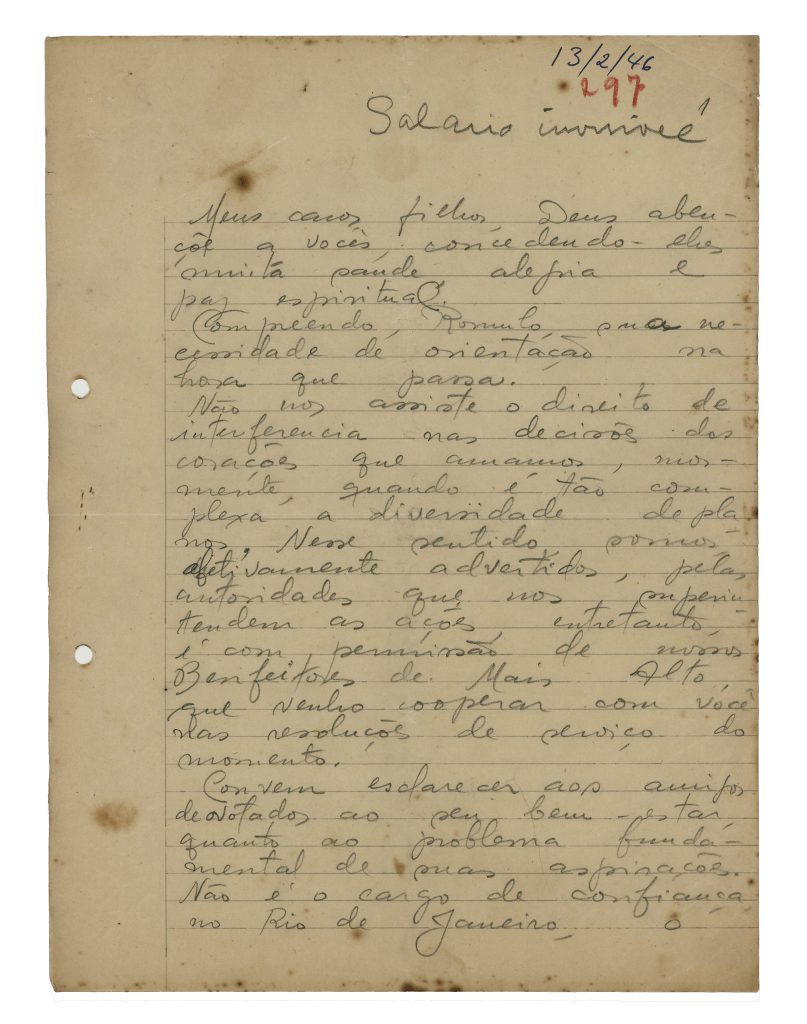 13/2/46
297
Salario invisivel
1
Meus caros filhos, Deus aben-
çôe a vocês, concedendo-lhes
muita saude alegria e
paz espiritual.
Compreendo, Romulo, sua ne-
cessidade de orientação na
hora que passa.
Não nos assiste o direito de
interferencia nas decisões dos
corações que amamos, mor-
mente, quando é tão com-
plexa a diversidade de pla
nos. Nesse sentido, somos,
efetivamente advertidos, pelas
autoridades que nos superin-
tendem as ações, entretanto,
é com permissão de nossos
Benfeitores de Mais Alto,
que venho cooperar com você
nas resoluções de serviço do
momento.
Convem esclarecer aos amigos
devotados ao seu bem-estar,
quanto ao problema funda-
mental de suas aspirações.
Não é o cargo de confiança,
no Rio de Janeiro, o